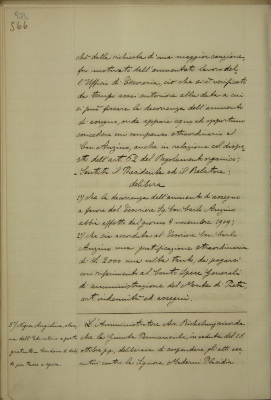 566
che della richiesta di una maggior cauzione,
fu motivata dall'aumentato lavoro del-
l'Ufficio di Economia, ciò che si è verificato
da tempo assai anteriore alla data a cui
si può fissare la decorrenza dell'aumento
di assegno, onde appare equo ed opportuno
concedere un compenso straordinario al
Cav. Anzino, anche in relazione al dispo-
sto dell'art. 52 del Regolamento organico;
Sentito il Presidente ed il Relatore;
delibera
1) che la decorrenza dell'aumento di assegno
a favore dell'Economo Sig. Cav. Carlo Anzino
abbia effetto dal giorno 8 novembre 1909;
2) che sia accordata all'Economo Cav. Carlo
Anzino una gratificazione straordinaria
di L. 2000 una volta tanto, da pagarsi
con riferimento al Conto Spese Generali
di amministrazione del Monte di Pietà
art. indennità ed assegni.
L'Amministratore Avv. ricorda
che la Giunta Permanente, in seduta del 18
pp. deliberava di sospendere gli atti ese-
cutivi contro la Signora